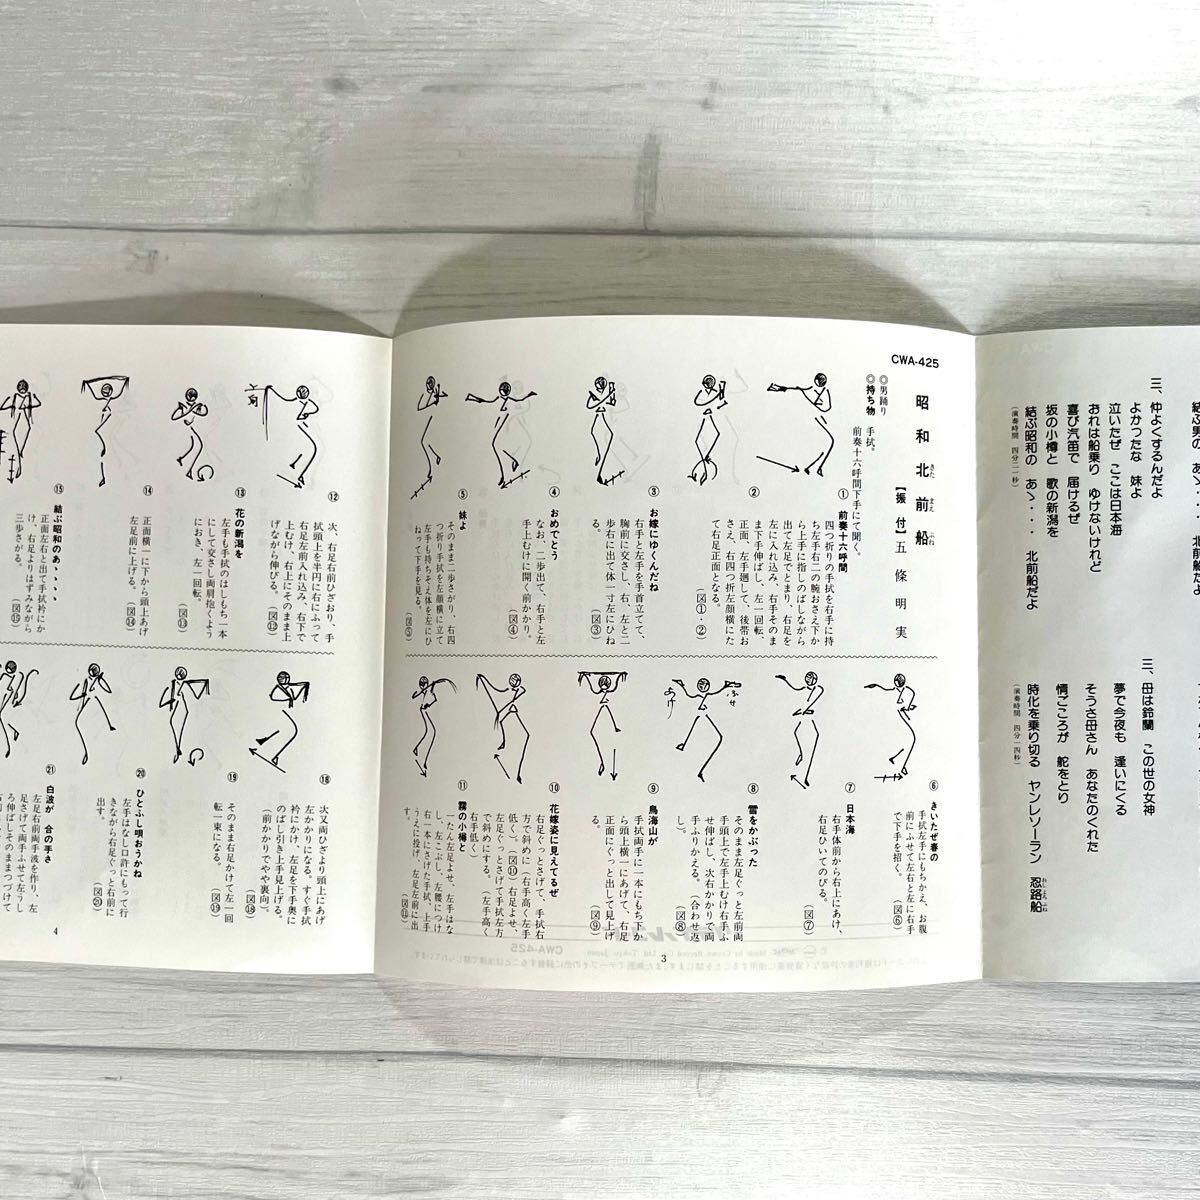 結ぶ男の あゝ・・
北前船だよ
三、仲よくするんだよ
よかったな 妹よ
泣いたぜ ここは日本海
おれは船乗り ゆけないけれど
喜び汽笛で 届けるぜ
坂の小樽と 歌の新潟を
結ぶ昭和の あゝ・・・・ 北前船だよ
(演奏時間 四分二一秒)
三、母は鈴蘭 この世の女神
夢で今夜も 逢いにくる
そうさ母さん あなたのくれた
情ごころが 舵をとり
時化を乗り切る ヤンレソーラン 忍路船
おしょろぶね
(演奏時間 四分一四秒)
CWA-425
昭和北前船
きた まえ ぶね
【振付】五條明実
◎男踊り
◎持ち物 手拭。
前奏十六呼間下手にて開く。
① 前奏十六呼間
四つ折りの手拭を右手に持
ち左手右二の腕おさえ下か
ら上手に指しのばしながら
出て左足でとまり、右足を
左に入れ込み、右手そのま
ま下手伸ばし、左一回転、
② 正面、左手廻して、後帯お
さえ、右四つ折左顔横にた
て右足正面となる。
(図①・②)
③ お嫁にゆくんだね
右手と左手を手首立てて、
胸前に交さし、右、左と二
歩右に出て体一寸左にひね
る。 (図③)
④ おめでとう
なお、二歩出て、右手と左
手上むけに開く前かかり。
(図④)
⑤ 妹よ
そのまま二歩さがり、右四
つ折り手拭を左顔横に立て
左手も持ちそえ体を左にひ
ねって下手を見る。
(図⑤)
⑥ きいたぜ春の
手拭左手にもちかえ、お腹
前にふせて左右と左に右手
で下手を招く。 (図⑥)
⑦ 日本海
右手体前から右上にあけ、
右足ひいてのびる。
(図⑦)
⑧ 雪をかぶった
そのまま左足ぐっと左前両
手頭上で左手上むけ右手ふ
せ伸ばし、次右かかりで両
手ふりかえる。(合わせ返
し)。 (図⑧)
ふせ
あけ
⑨ 鳥海山が
手拭両手に一本にもち下か
ら頭上横一にあげて、右足
正面にぐっと出して見上げ
る。 (図⑨)
⑩ 花嫁姿に見えてるぜ
右足ぐっとさげて、手拭右
方で斜めに(右手高く左手
低く)。(図⑩)右足よせ、
左足ぐっとさげて手拭左方
で斜めにする。(左手高く
右手低く)
⑪ 霧の小樽と
一たん左足よせ、左手はな
し、左こぶし、左腰につけ
右一本にさげた手拭、上手
うえに投げ、左足左前に出
す。 (図⑪)
3
⑫
次、右足右前ひざおり、手
拭頭上を半円に右にふって
右足左前入れ込み、右下で
上むけ、右上にそのまま上
げながら伸びる。
(図⑫)
⑬ 花の新潟を
左手も手拭のはしもち一本
にして交さし両肩抱くよう
におき、左一回転。
(図⑬)
⑭
正面横一に下から頭上あげ
左足前に上げる。
(図⑭)
⑮ 結ぶ昭和のあゝゝゝ
正面左右と出て手拭衿にか
け、右足よりはずみながら
三歩さがる。 (図⑮)
⑱
次又両ひざより頭上にあげ
左かかりになる。すぐ手拭
衿にかけ、左足を下手奥に
のばし引き上手見上げる。
(前かかりでやや裏向)。
(図⑱)
⑲
そのまま右足かけて左一回
転一束になる。
(図⑲)
⑳ ひとふし唄おうかね
左手はなし口許にもって行
きながら右足ぐっと右前に
出す。 (図⑳)
㉑ 白波が 合の手き
左足右前両手波を作り、左
足さげて両手ふせて左うし
ろ伸ばしそのままつづけて
4